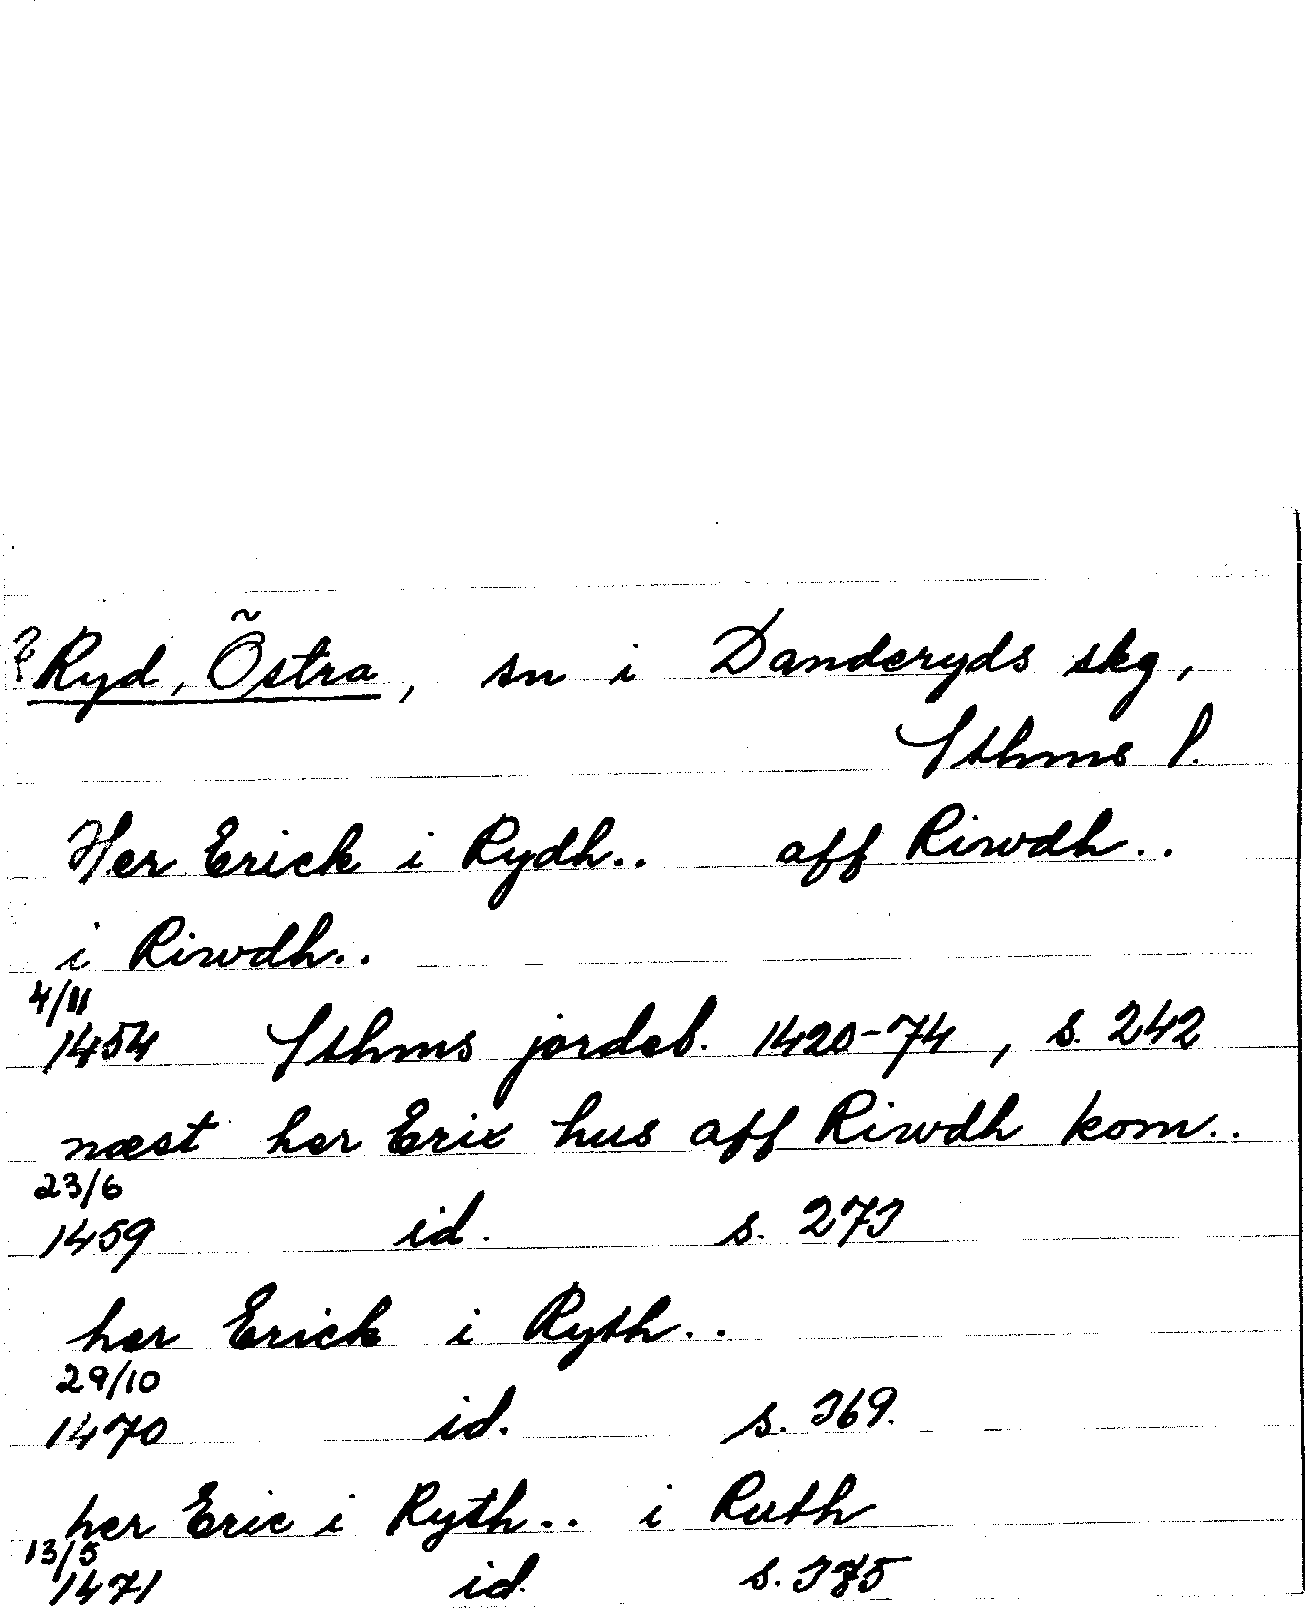 Ryd, Östra, sn i Danderyds skg,
Sthms l.
Her Erick i Rydh.. aff Riwdh..
i Riwdh..
4/11
1454 Sthms jordeb. 1420-74, s. 242
næst her Erix hus aff Riwdh kom..
23/6
1459 id. s. 273
her Erick i Ryth..
29/10
1470 id. s. 369.
her Eric i Ryth.. i Ruth
13/5
1471 id. s. 375